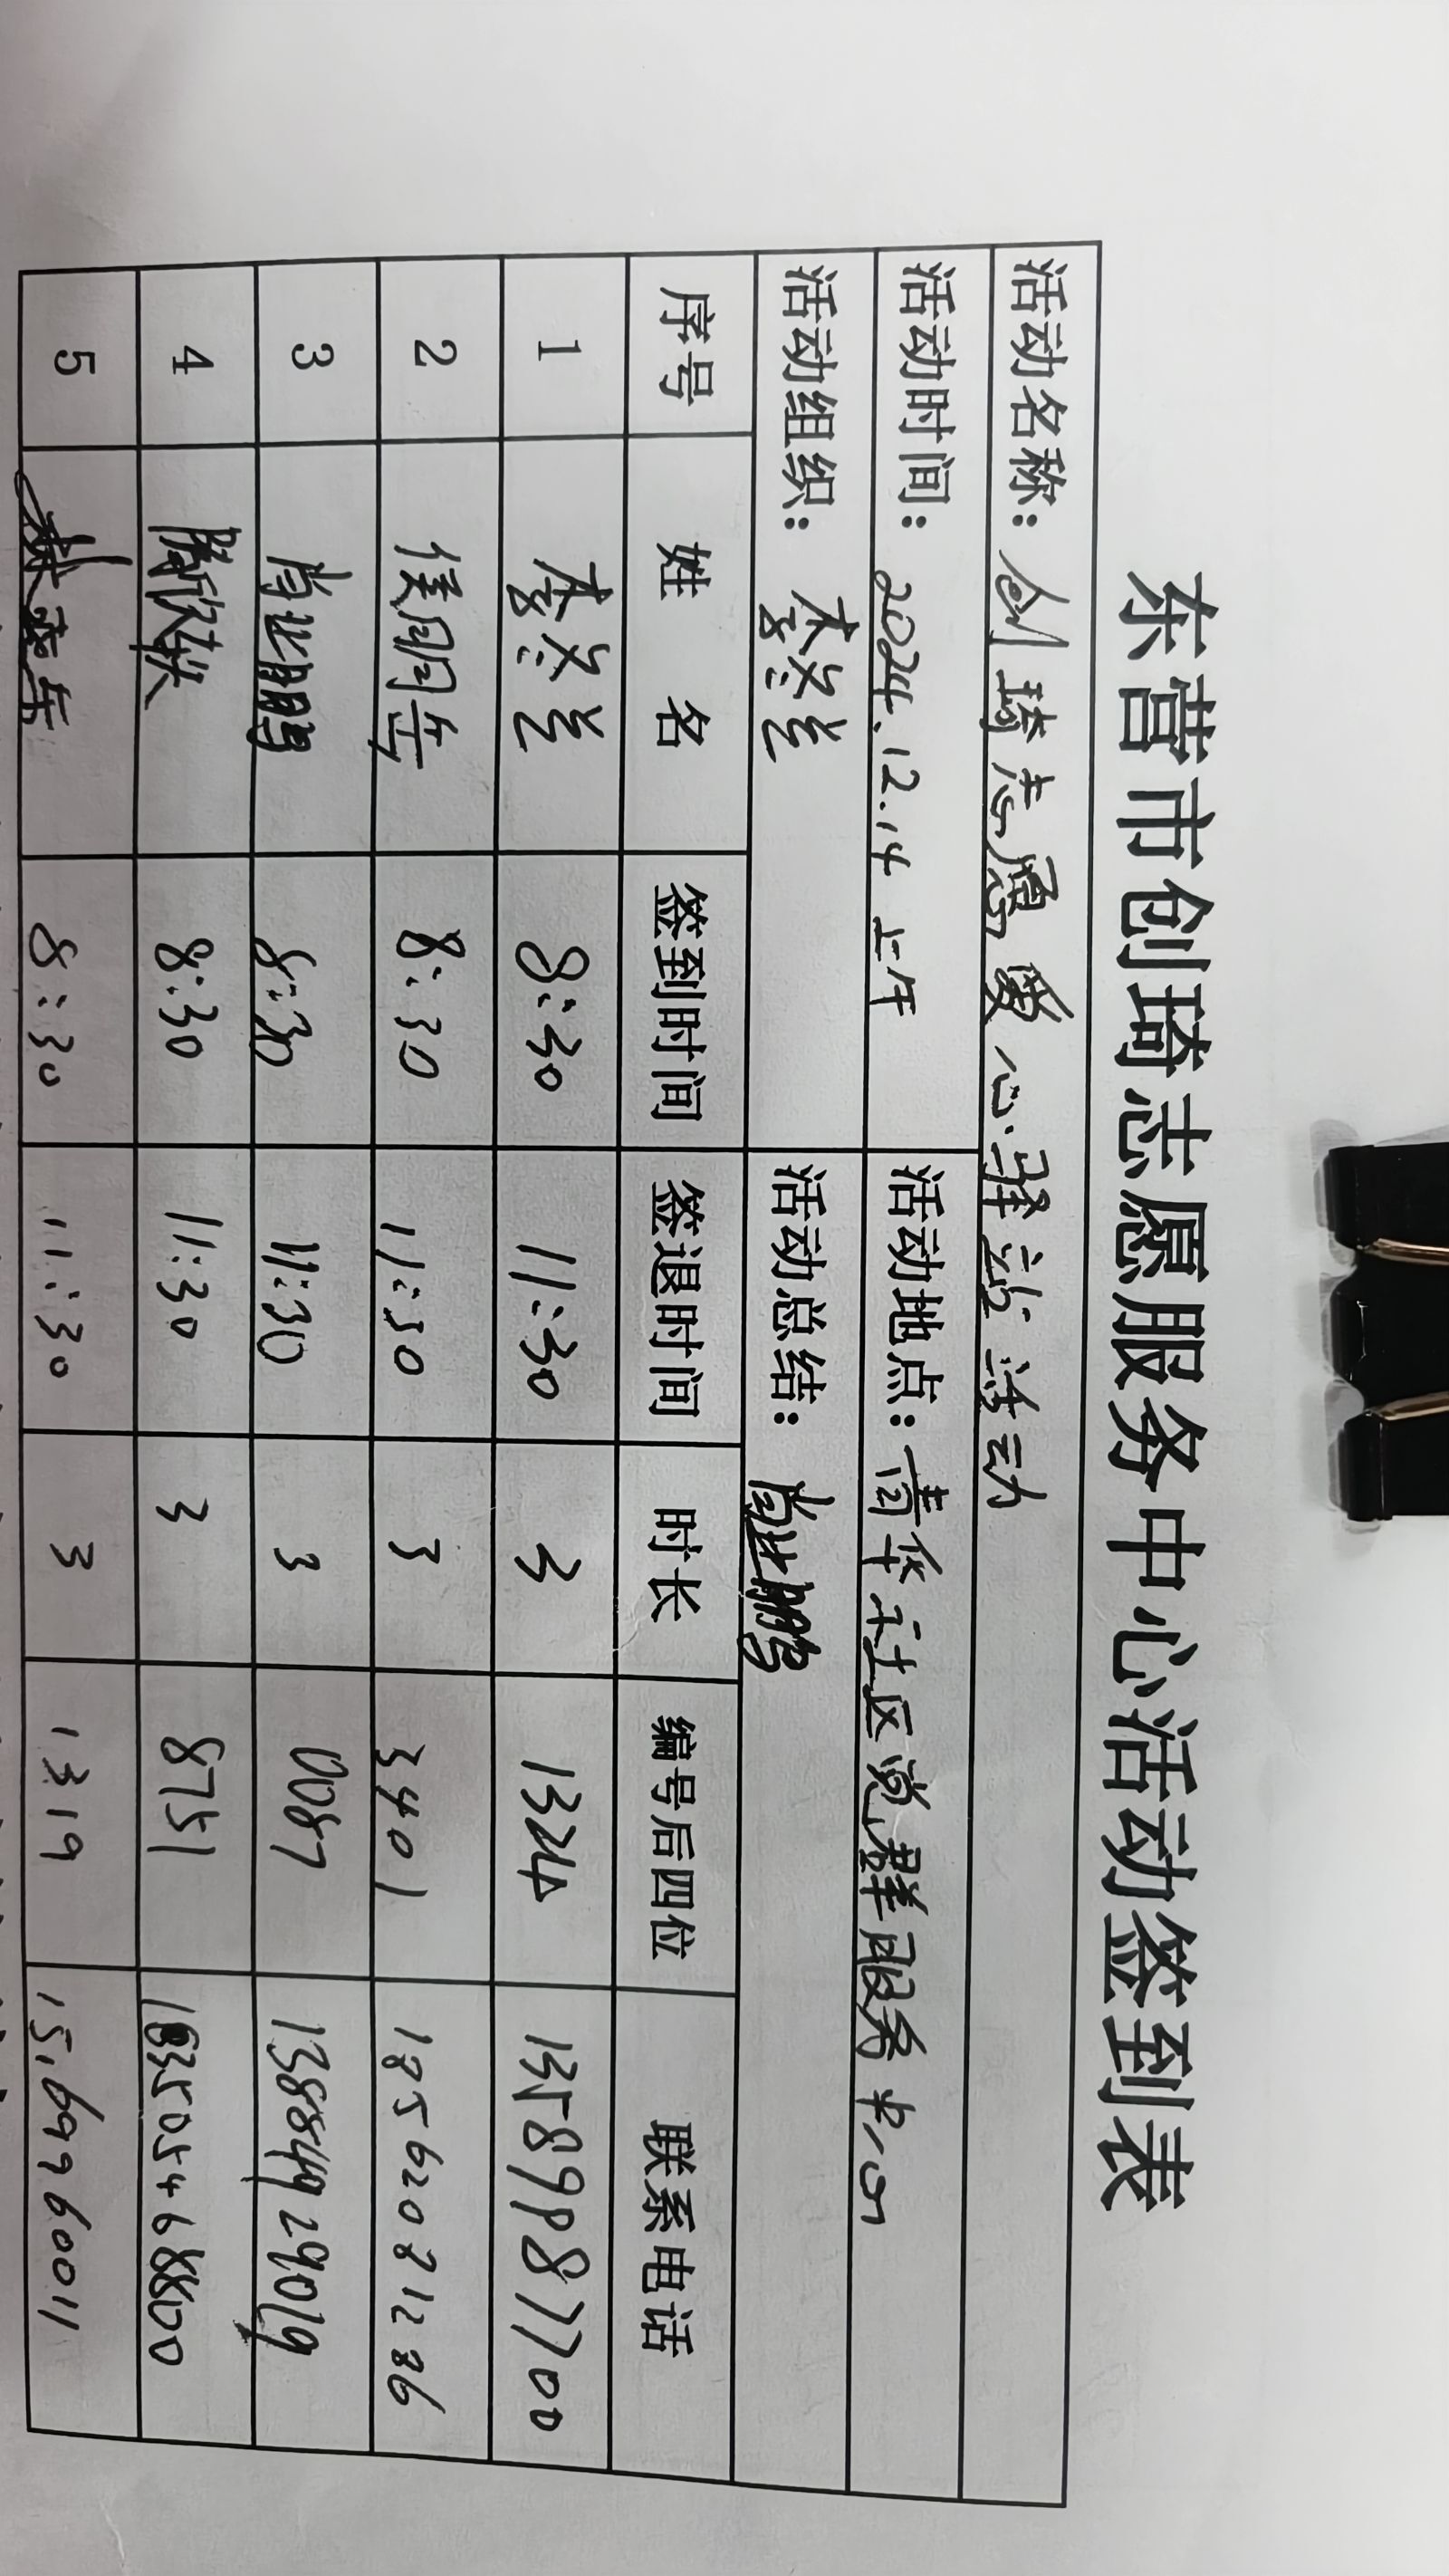 东营市创琦志愿服务中心活动签到表
活动名称：创琦志愿爱心驿站活动
活动时间：2024.12.14 上午 活动地点：清华社区党群服务中心
活动组织：李冬兰 活动总结：肖兆鹏
序号 姓 名 签到时间 签退时间 时长 编号后四位 联系电话
1 李冬兰 8:30 11:30 3 1324 13589987700
2 侯明岳 8:30 11:30 3 3401 18562081286
3 肖兆鹏 8:30 11:30 3 0087 13884929019
4 8:30 11:30 3 8751
5 8:30 11:30 3 1319